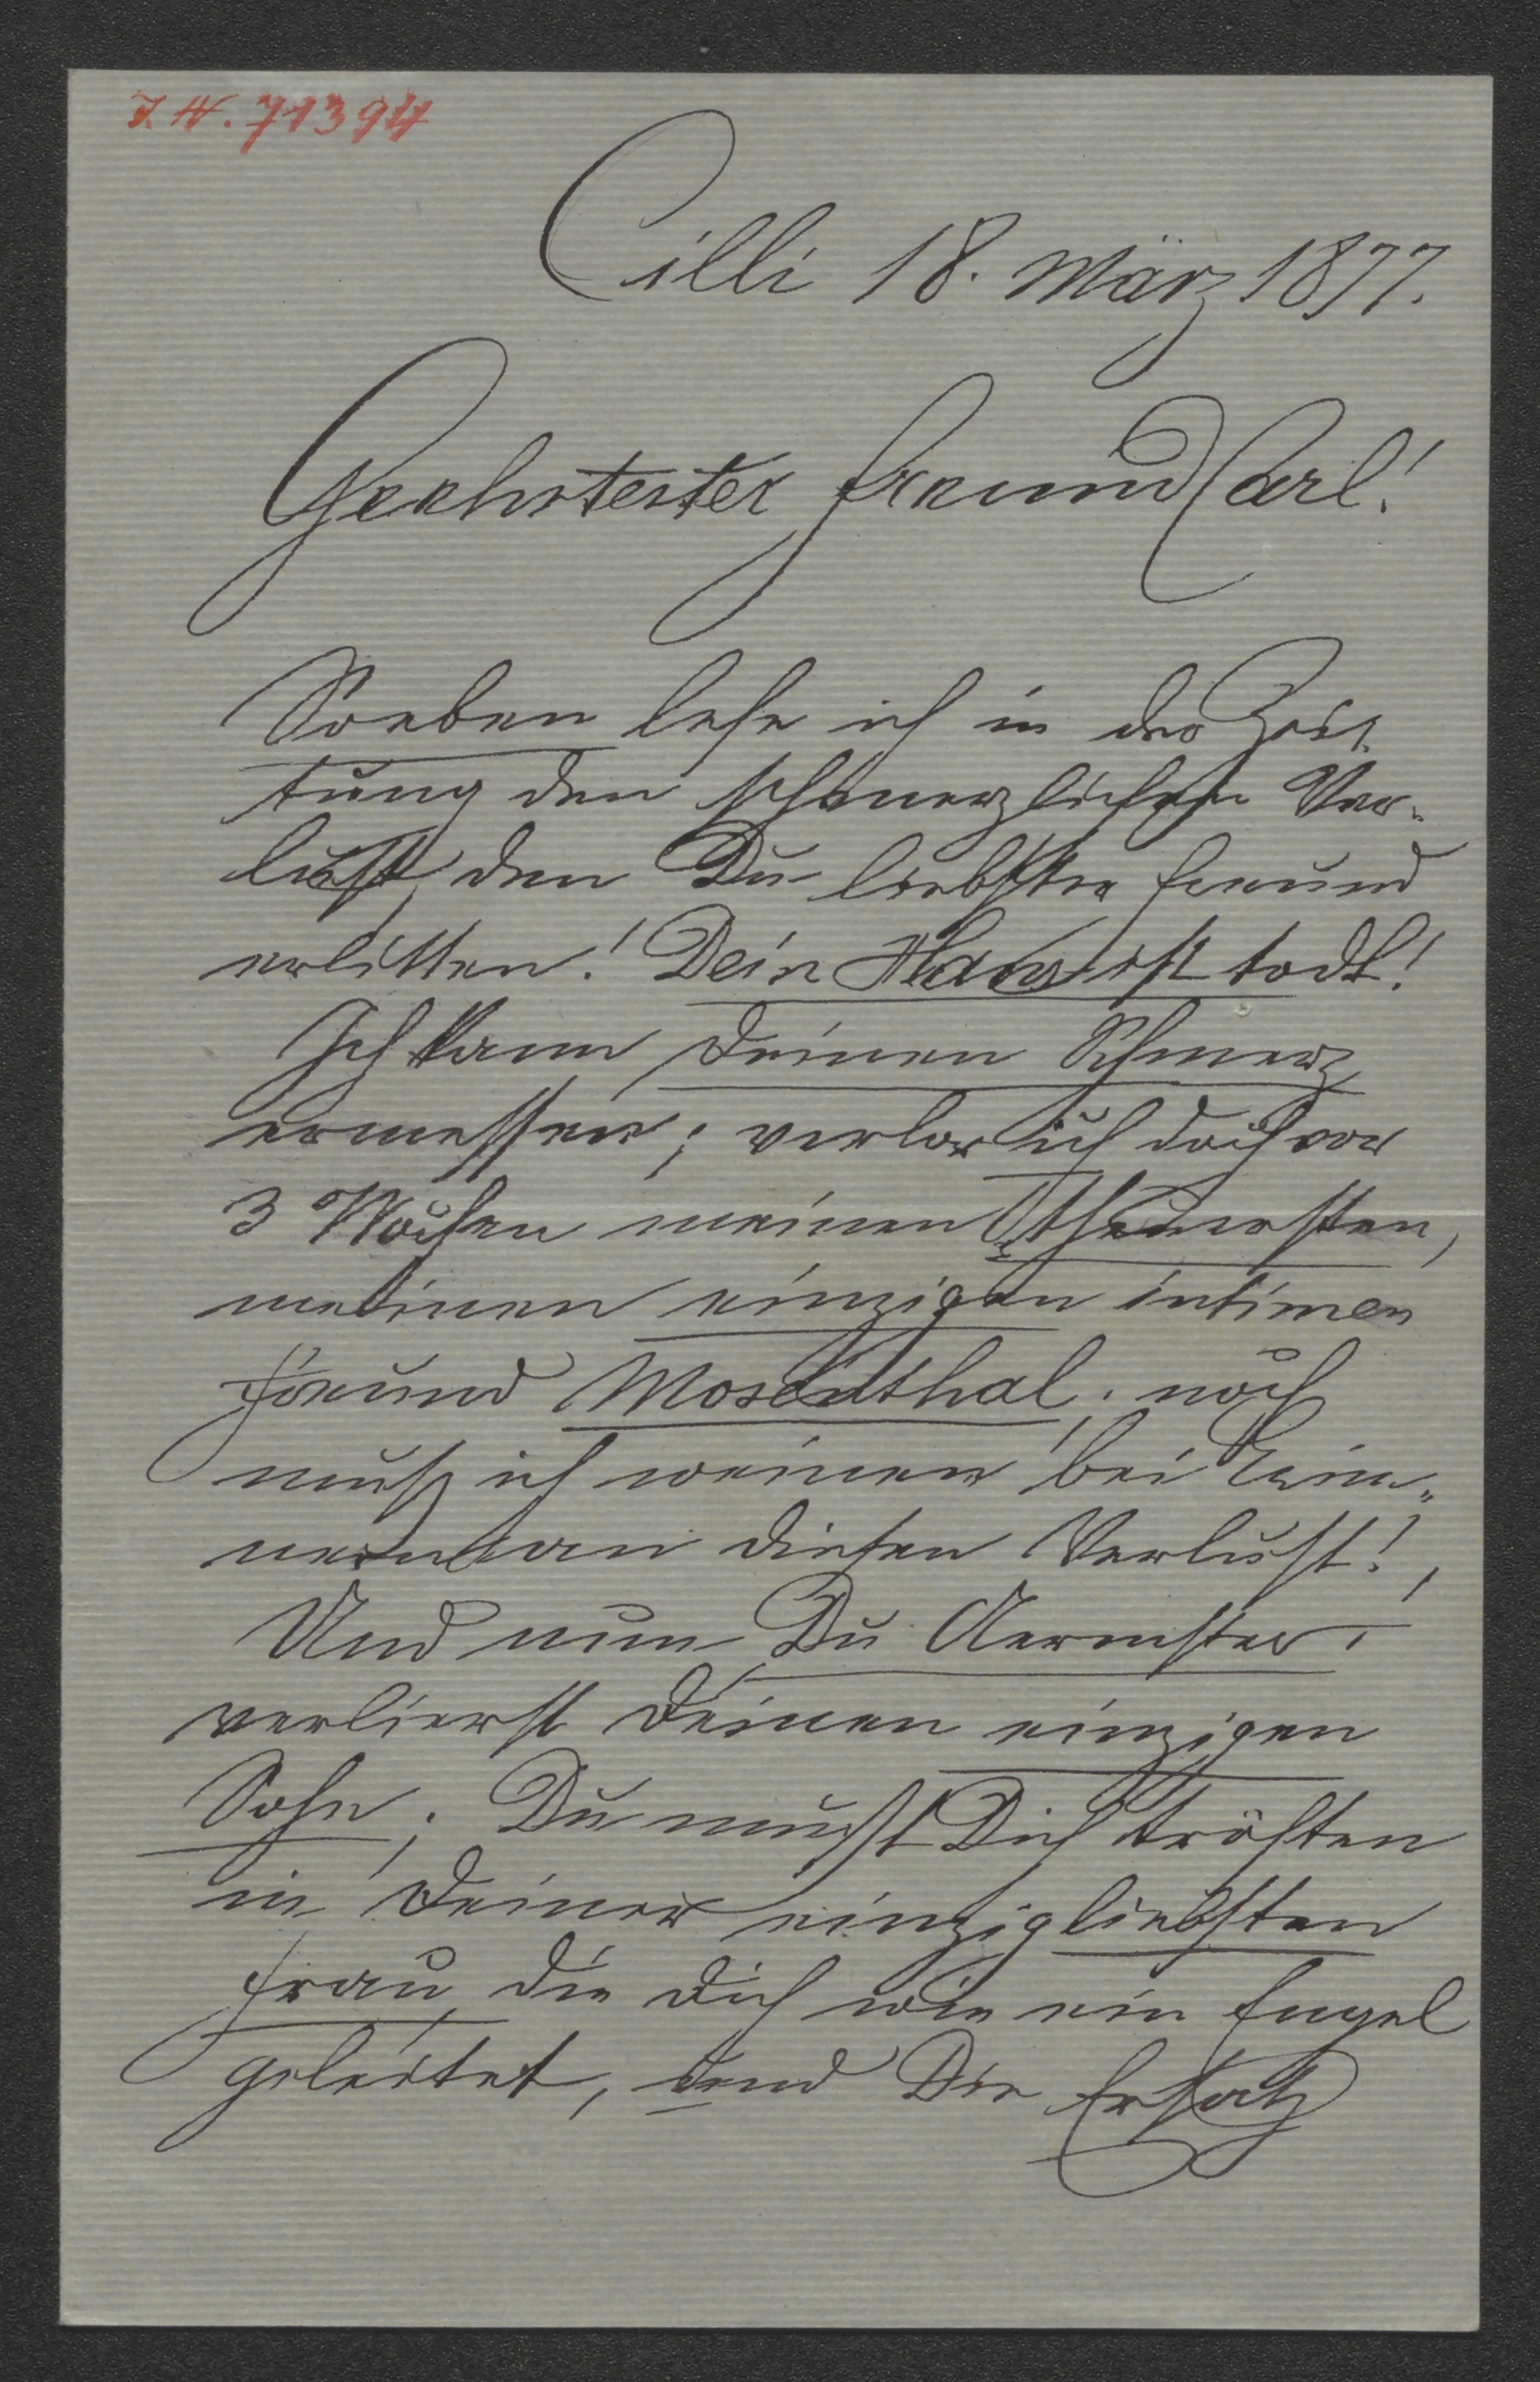 I. N. 71394
Cilli 18. März 1877.
Geehrtester Freund Carl!
Soeben lese ich in der Zei-
tung den schmerzlichen Ver-
lust, den Du liebster Freund
erlitten! Dein Hans ist todt!
Ich kann Deinen Schmerz
ermessen; verlor ich doch vor
3 Wochen meinen theuersten,
meinen einzigen intimen
Freund Mosenthal. noch
muß ich weinen bei Erin-
nern an diesen Verlust!
Und nun Du Aermster!
verlierst Deinen einzigen
Sohn; Du mußt Dich trösten
in Deiner einzigliebsten
Frau die Dich wie ein Engel
geleitet, und Dir Ersatz